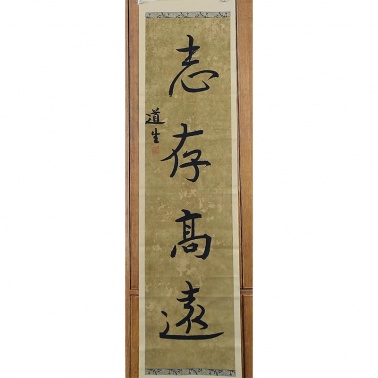 志存髙遠
道生